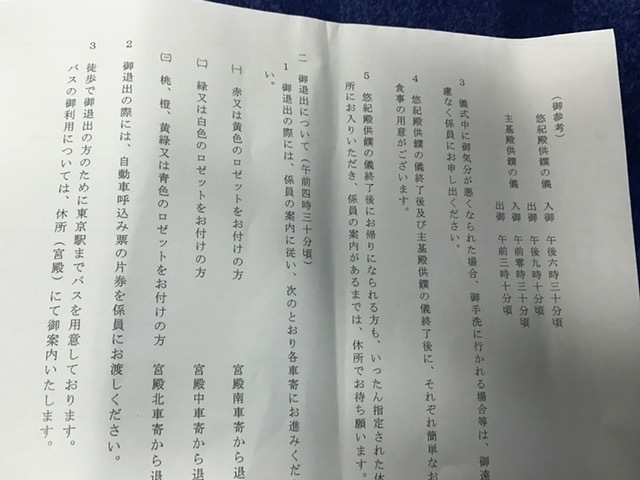 (御参考)
悠紀殿供饌の儀 入御 午後六時三十分頃
出御 午後九時十分頃
主基殿供饌の儀 入御 午前零時三十分頃
出御 午前三時十分頃
3 儀式中に御気分が悪くなられた場合、御手洗に行かれる場合等は、御遠
慮なく係員にお申し出ください。
4 悠紀殿供饌の儀終了後及び主基殿供饌の儀終了後に、それぞれ簡単なお
食事の用意がございます。
5 悠紀殿供饌の儀終了後にお帰りになられる方も、いったん指定された休
所にお入りいただき、係員の案内があるまでは、休所でお待ち願います。
二 御退出について(午前四時三十分頃)
1 御退出の際には、係員の案内に従い、次のとおり各車寄にお進みくださ
い。
㈠ 赤又は黄色のロゼットをお付けの方 宮殿南車寄から退
㈡ 緑又は白色のロゼットをお付けの方 宮殿中車寄から退
㈢ 桃、橙、黄緑又は青色のロゼットをお付けの方 宮殿北車寄から退
2 御退出の際には、自動車呼込み票の片券を係員にお渡しください。
3 徒歩で御退出の方のために東京駅までバスを用意しております。
バスの御利用については、休所(宮殿)にて御案内いたします。